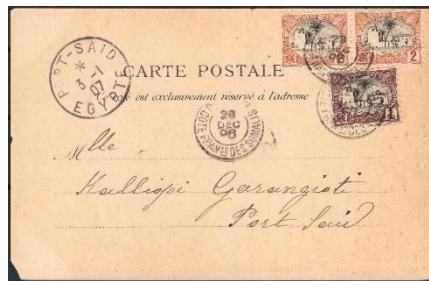 PORT-SAID
5-1
07
EGYPTE
CARTE POSTALE
Ce côté est exclusivement réservé à l'adresse
28
DÉC
06
CÔTE FRANÇSE DES SOMALIS
2
1
Mlle
Kalliopi Garangioti
Port Said